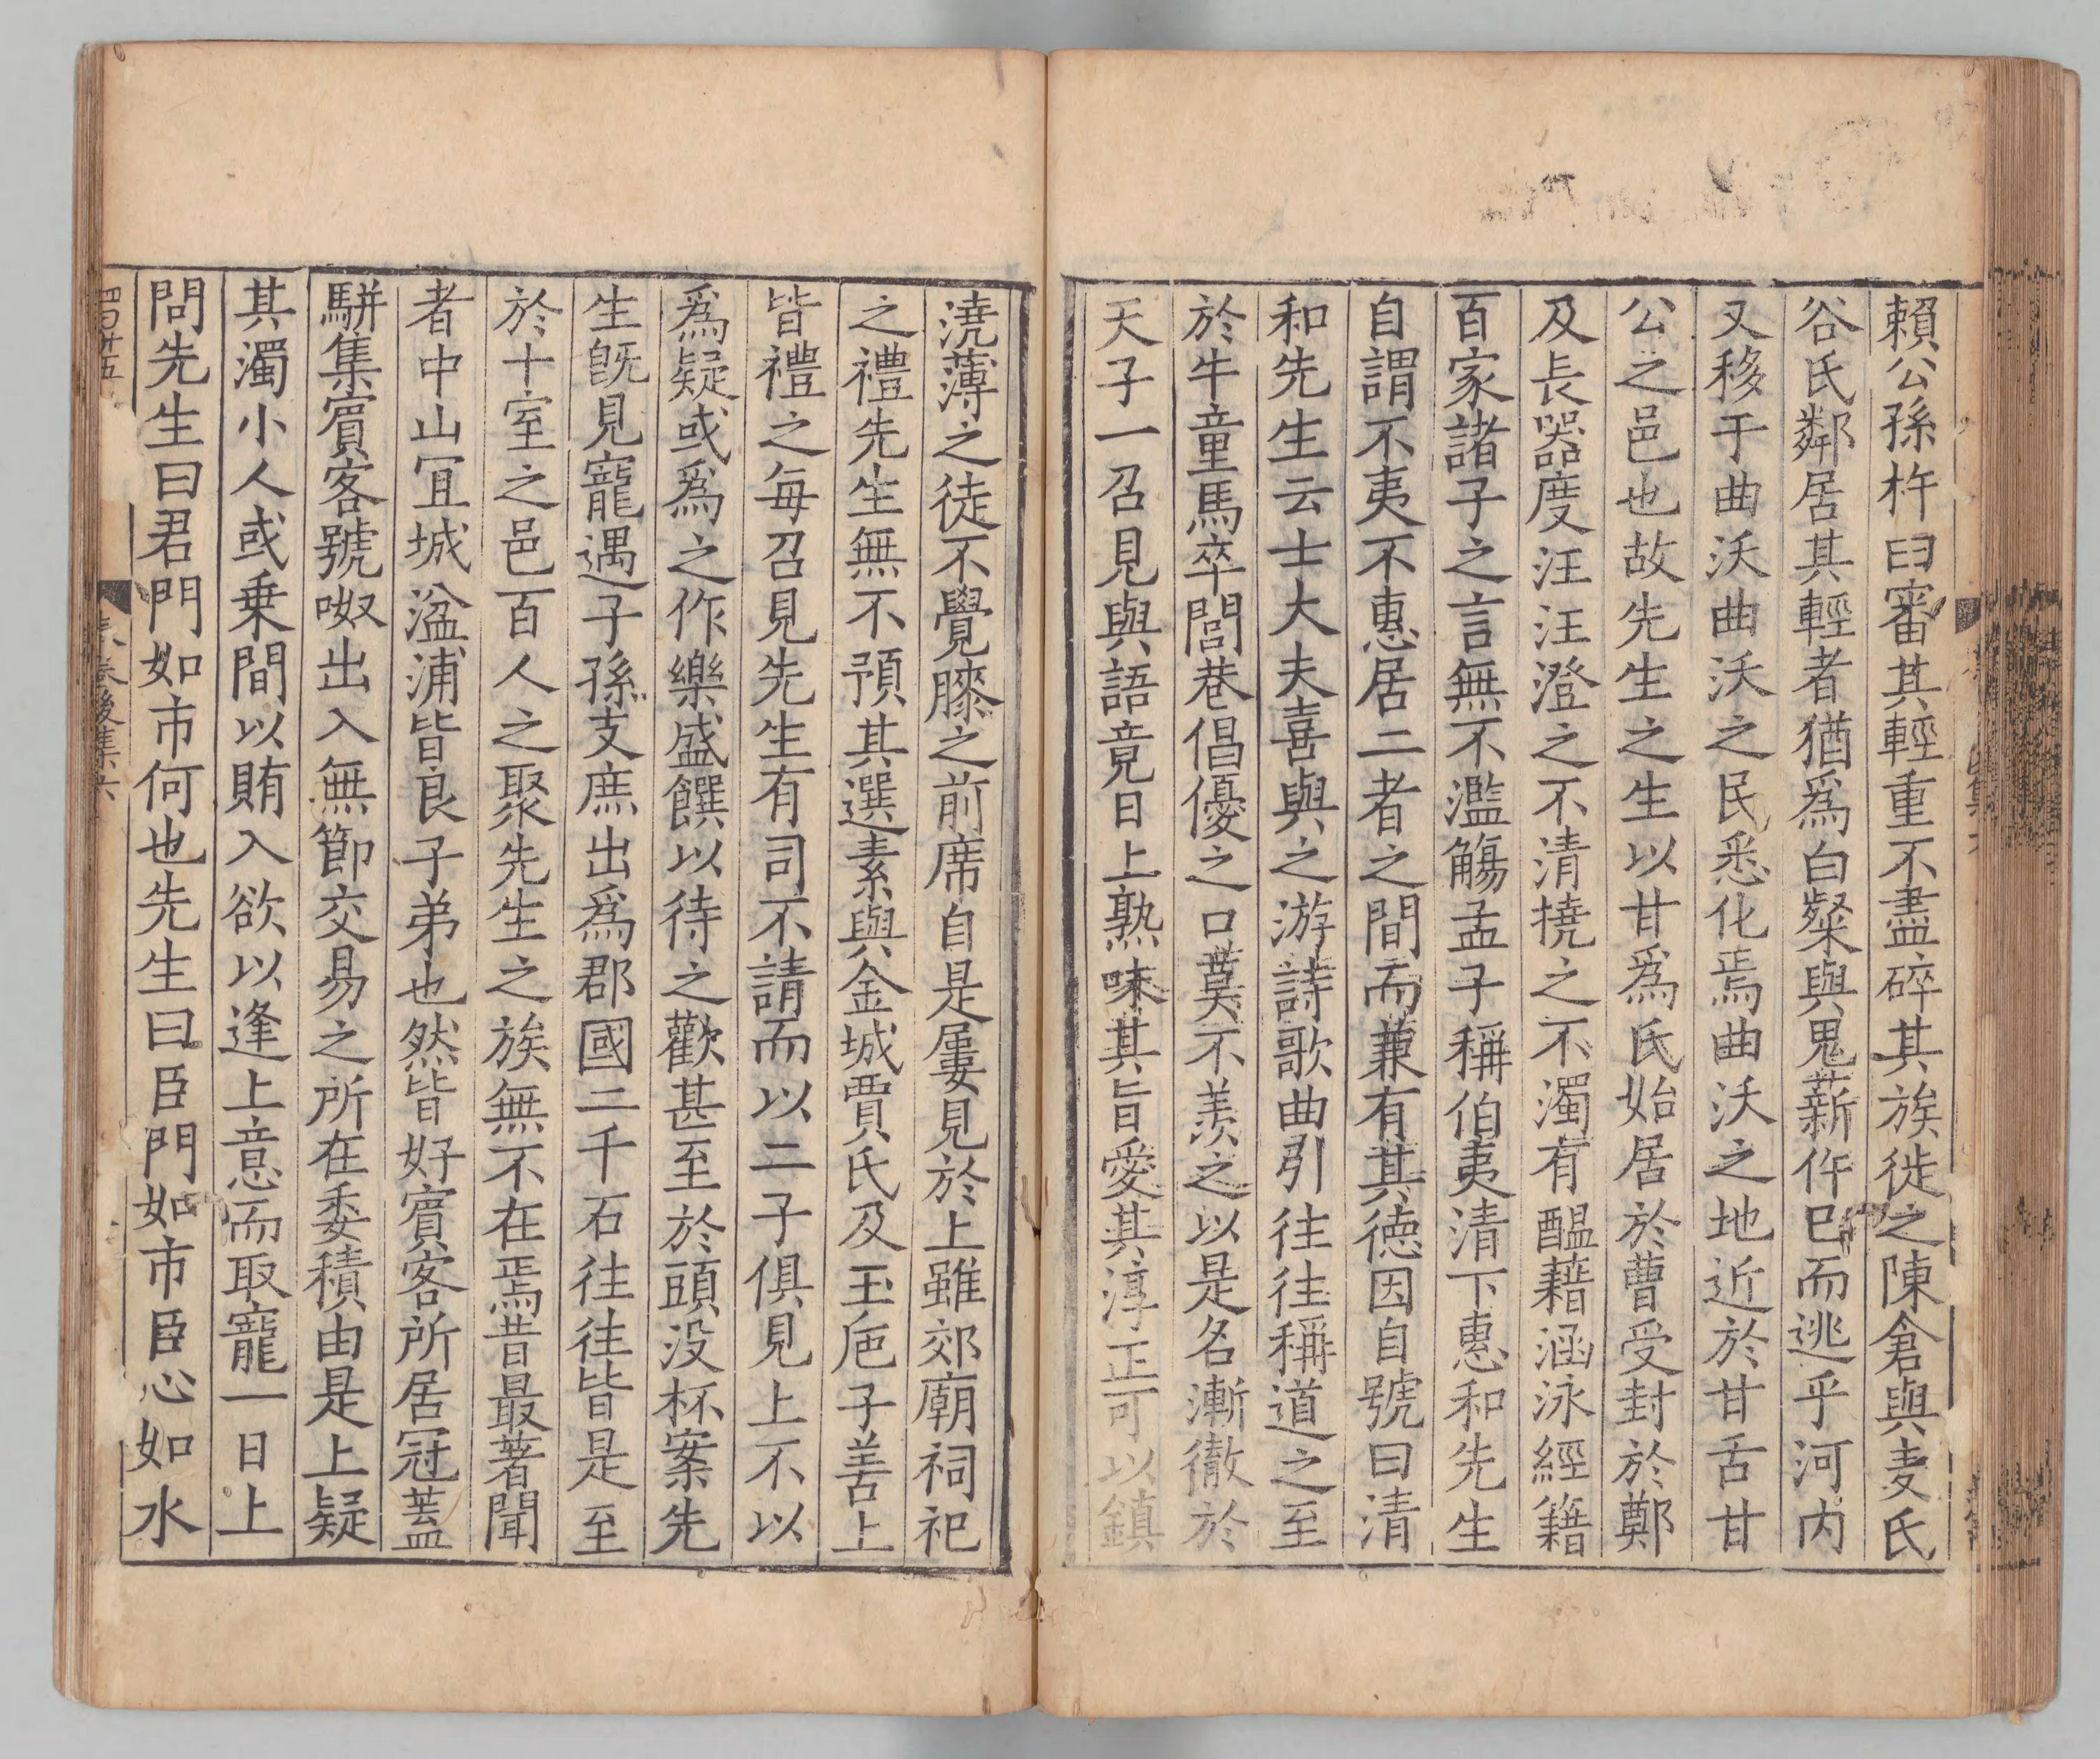 賴公孫杵臼審其輕重不盡碎其族徙之陳倉與麦氏
谷氏鄰居其輕者猶爲白粲與鬼薪仵巳而逃乎河内
又移于曲沃曲沃之民悉化焉曲沃之地近於甘舌甘
公之邑也故先生之生以甘爲氏始居於曹受封於鄭
及長噐度汪汪澄之不清撓之不濁有醖藉涵泳經籍
百家諸子之言無不濫觴孟子稱伯夷清下惠和先生
自謂不夷不惠居二者之間而兼有其德因自號曰清
和先生云士大夫喜與之游詩歌曲引往往稱道之至
於牛童馬卒閭巷倡優之口莫不羨之以是名漸徹於
天子一召見與語竟日上熟味其旨愛其淳正可以鎮
澆薄之徒不覺膝之前席自是屢見於上雖郊廟祠祀
之禮先生無不預其選素與金城賈氏及玉巵子善上
皆禮之每召見先生有司不請而以二子俱見上不以
爲疑或爲之作樂盛饌以待之歡甚至於頭没杯案先
生旣見寵遇子孫支庶出爲郡國二千石往往皆是至
於十室之邑百人之聚先生之族無不在焉昔最著聞
者中山冝城湓浦皆良子弟也然皆好賓客所居冠蓋
駢集賓客號呶出入無節交易之所在委積由是上疑
其濁小人或乗間以賄入欲以逢上意而取寵一日上
問先生曰君門如市何也先生曰臣門如市臣心如水
四百廿五
卷後集六